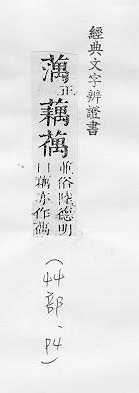 經典文字辨證書
蕅正
藕 並俗陸德明
曰藕亦作
(艸部、P4)